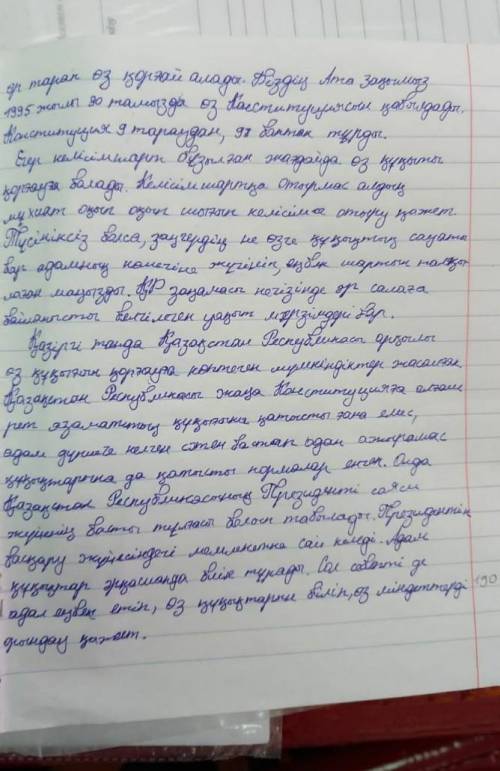 әр тарап өз қорғай алады. Біздің Ата заңымыз
1995 жылы 30 тамызда өз Конституциясын қабылдады.
Конституция 9 тараудан, 98 баптан тұрды.
Егер келісімшарт бұзылған жағдайда өз құқығы
қорғауға болады. Келісімшартқа отырмас алдың
мұхият оқып оқып шығып келісімге отыру қажет.
Түсініксіз болса, заңгердің не өзге құқықтық сауаты
бар адамның көмегіне жүгініп, еңбек шартын талқы
лаған маңызды. ҚР заңнамасы негізінде әр салаға
байланысты белгіленген уақыт мерзімдері бар.
Қазіргі таңда Қазақстан Республикасы арқылы
өз құқығын қорғауға көптеген мүмкіндіктер жасалған.
Қазақстан Республикасы жаңа Конституцияға алғаш
рет азаматтың құқығына қатысты ғана емес,
адам дүниеге келген сәтен бастап одан ажырамас
құқықтарына да қатысты нормалар енген. Онда
Қазақстан Республикасының Президенті саяси
жүйенің басты тұлғасы болып табылады. Президенттік
басқару жүйесіндегі мемлекетке сай келеді. Адам
құқықтар әрқашанда биік тұрады. Сол себепті де
адал еңбек етіп, өз құқықтарын біліп, өз міндеттерді 190
орындау қажет.